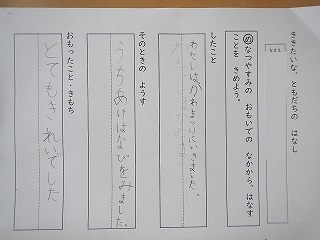 ききたいな、ともだちの はなし
なまえ
め なつやすみの おもいでの なかから、はなす
ことを きめよう。
したこと
わたしは、かわまつりにいきました。
そのときの ようす
うちあげはなびをみました。
おもったこと・きもち
とてもきれいでした